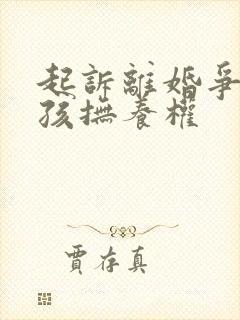 起訴離婚爭
孩撫養權
賈存真